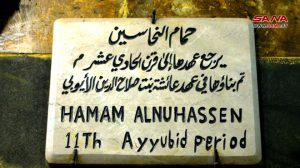 SANA
حمام النحاسين
يرجع عهدها إلى قرن الحادي عشر م
تم بناؤها في عهد عائشة بنت صلاح الدين الأيوبي
HAMAM ALNUHASSEN
11Th Ayyubid period